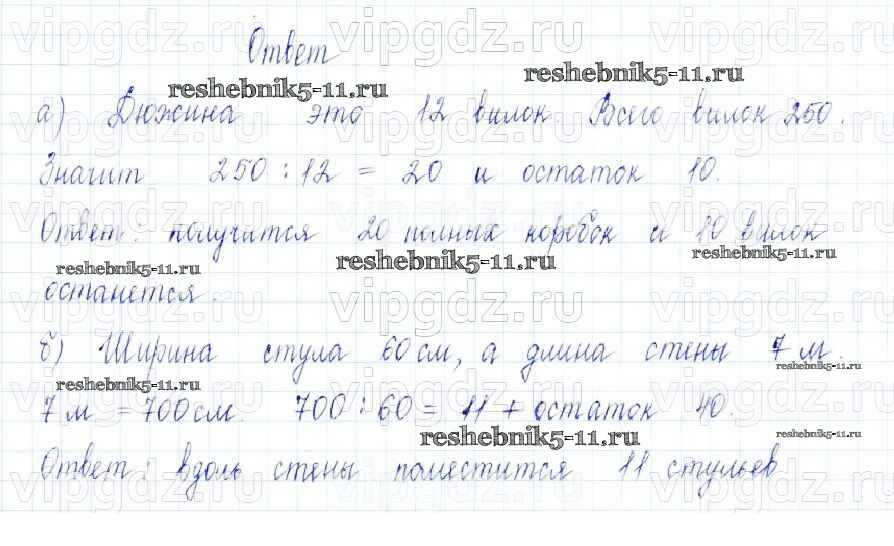 vipgdz.ru vipgdz.ru vipgdz.ru
Ответ
reshebnik5-11.ru reshebnik5-11.ru
а) Дюжина это 12 вилок Всего вилок 250.
vipgdz.ru vipgdz.ru vipgdz.ru
Значит 250 : 12 = 20 и остаток 10.
vipgdz.ru vipgdz.ru vipgdz.ru
Ответ: получится 20 полных коробок и 10 вилок
reshebnik5-11.ru reshebnik5-11.ru reshebnik5-11.ru
останется.
vipgdz.ru vipgdz.ru vipgdz.ru
б) Ширина стула 60 см, а длина стены 7 м.
reshebnik5-11.ru reshebnik5-11.ru
7 м = 700 см. 700 : 60 = 11 + остаток 40.
vipgdz.ru vipgdz.ru vipgdz.ru
reshebnik5-11.ru reshebnik5-11.ru
Ответ: вдоль стены поместится 11 стульев
vipgdz.ru vipgdz.ru vipgdz.ru